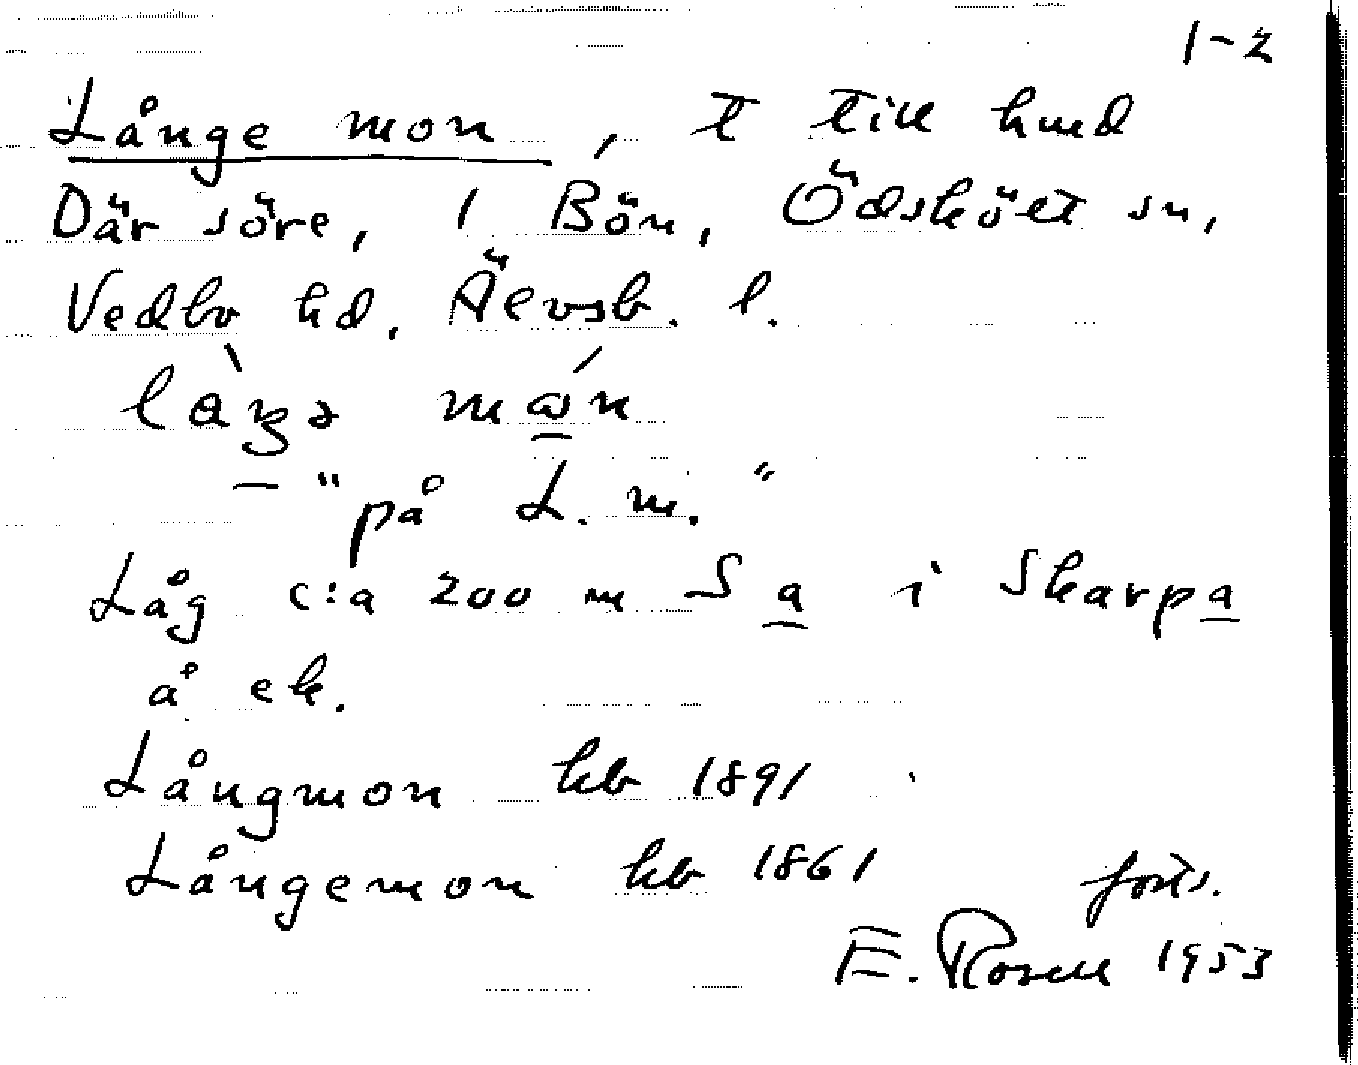 1-2
Långe mon, t till hmd
Där söre, 1 Bön, Ödsköet sn,
Vedbo hd. Älvsb. l.
— "på L. m."
Låg c:a 200 m S a i Skarpa
å ek.
Långmon hb 1891
Långemon hb 1861 forts.
E. Rosell 1953